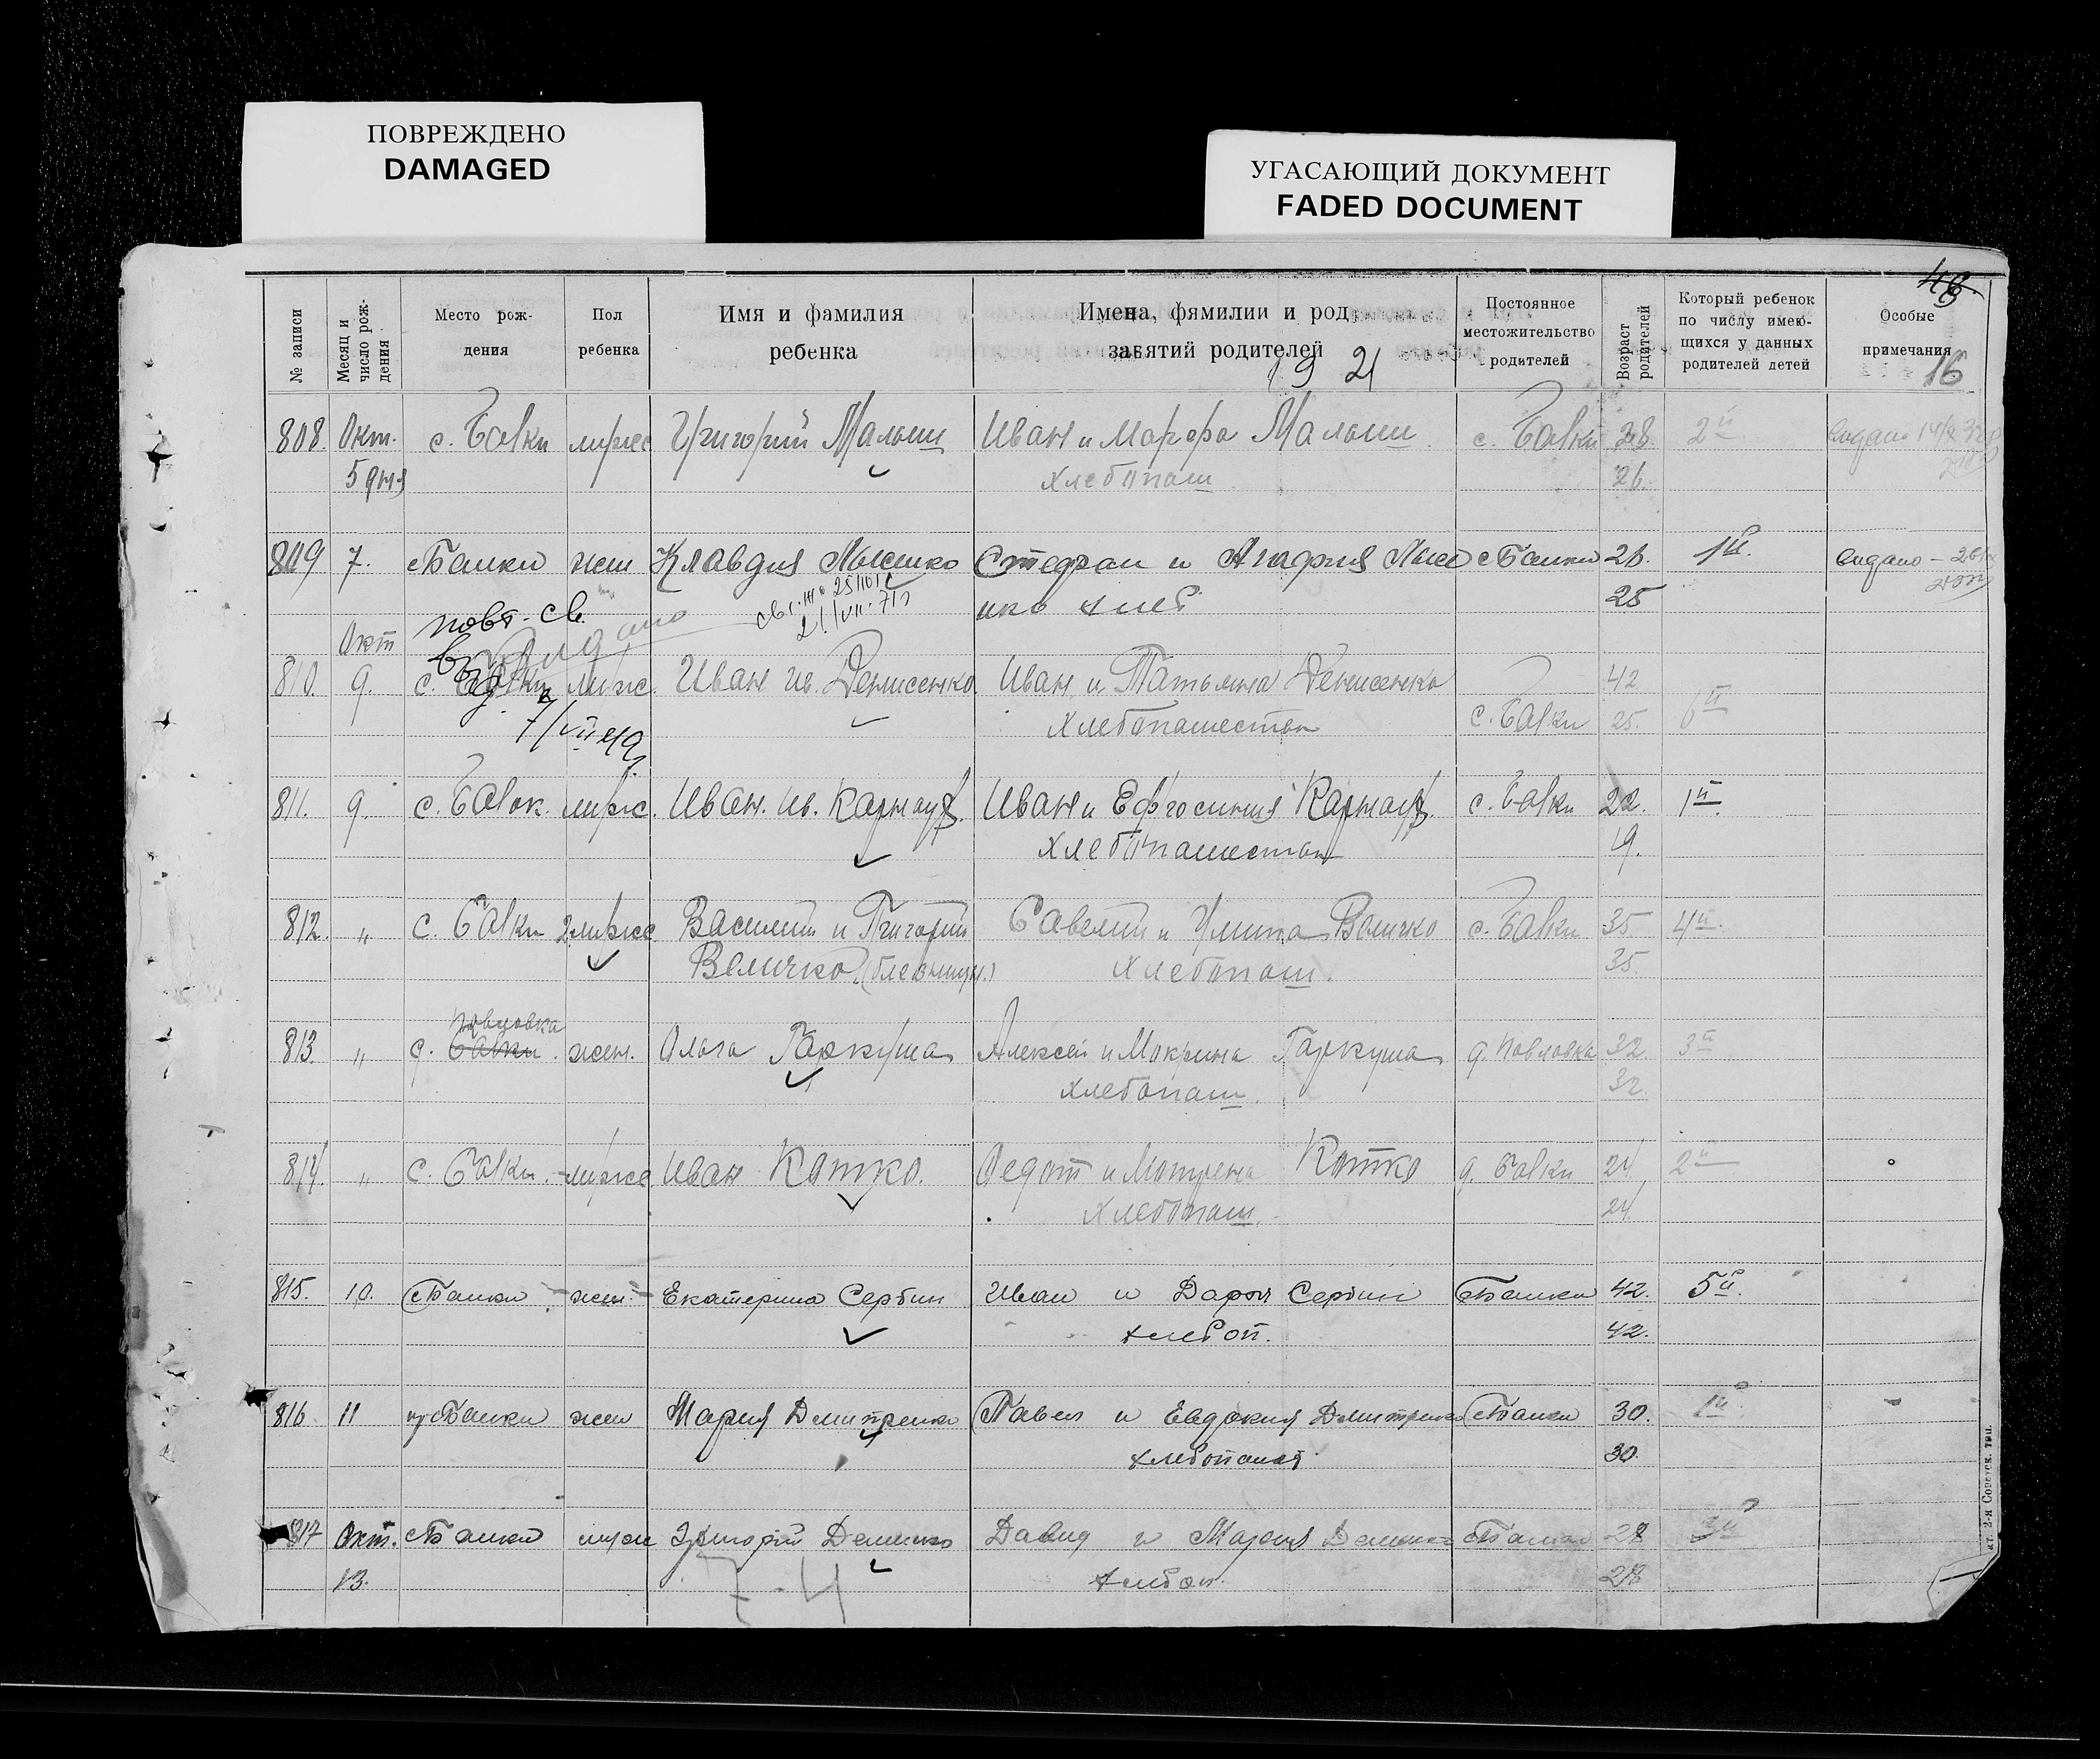 ПОВРЕЖДЕНО
DAMAGED
УГАСАЮЩИЙ ДОКУМЕНТ
FADED DOCUMENT
16
№ записи
Месяц и число рож-дения
Место рож-дения
Пол ребенка
Имя и фамилия ребенка
Имена, фямилии и род
занятий родителей
1921
Постоянное местожительство родителей
Возраст родителей
Который ребенок по числу имею-щихся у данных родителей детей
Особые примечания
808. Окт. с. Балки мужс Григорий Малыш Иван и Марфа Малыш с. Балки 28. 2й
5 дня хлебопаш 26.
809 7. с Балки жен Клавдия Стефан и Агафия с Балки 26. 1й.
хлеб 25
повт. св.
Окт
810. 9. с. Балки мужс. Иван Ив. Денисенко Иван и Татьяна Денисенко 42
хлебопашеством с. Балки 25. 6й
7/VII 49.
811. 9. с. Балок. мужс. Иван. Ив. Карнаух. Иван и Ефросиния Карнаух. с. Балки 22. 1й.
хлебопашеством 19.
812. " с. Балки 2 мужс Василий и Григорий Савелий и Улита Величко с. Балки 35 4й.
Величко (близнецы.) хлебопаш. 35.
Павловка
813. " д. Балки. жен. Ольга Гаркуша Алексей и Макрина Гаркуша д. Павловка 32 3й
хлебопаш. 32.
814. " с. Балки. мужс Иван Котко. Федот и Мотрена Котко Балки 24 2й
хлебопаш. 24.
815. 10. с Балки жен. Екатерина Сербин Иван и Дарья Сербин с Балки 42. 5й.
хлебоп. 42.
816 11 Балки жен Мария Дмитренко Павел и Евдокия Дмитренко с Балки 30. 1й
хлебопаш 30.
817 Окт. с Балки муж Григорий Давид и Мария с Балки 28 3й
13. хлебоп. 28
7-4